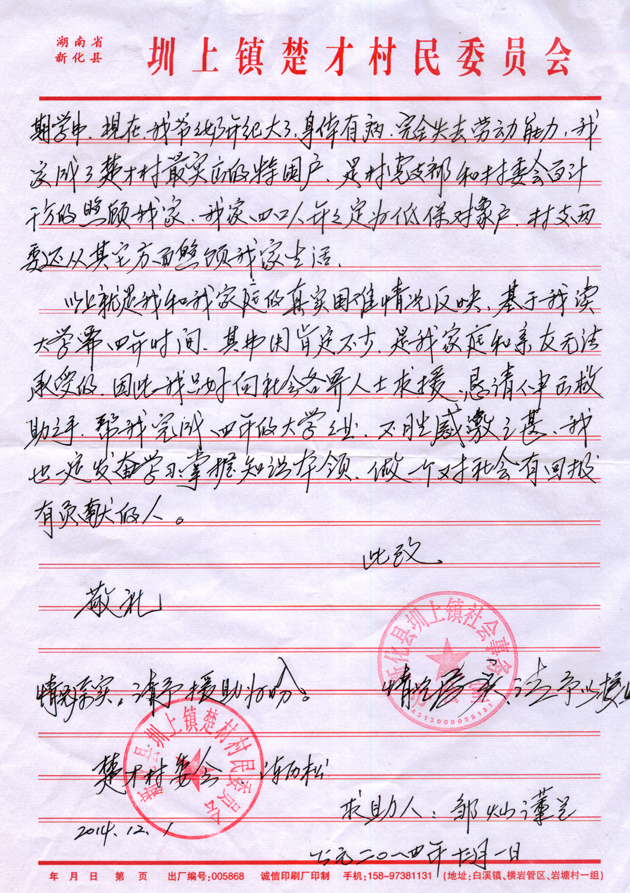 湖南省
新化县
圳上镇楚才村民委员会
期学中，现在，我爷爷奶年纪大了，身体有病，完全失去劳动能力，我
家成了楚才村最实应的特困户，是村党支部和村委会百计
千方的照顾我家，我家四口人并定为低保对象户，村支两
委还从其它方面照顾我家生活。
以上就是我和我家庭的真实困难情况反映，基于我读
大学需四年时间，其中用肯定不少，是我家庭和亲友无法
承受的，因此我只好向社会各界人士求援，恳请伸出救
助之手，帮我完成四年的大学之业，不胜感激之甚，我
也一定发奋学习掌握知识本领，做一个对社会有回报
有贡献的人。
此致
敬礼
情况属实，请予援助为盼。
情况属实，请予以援
新化县圳上镇社会事务
4313000056131
新化县圳上镇楚才村村民委员会
楚才村委会
2014.12.1
求助人：邹灿
公元二〇一四年十二月一日
年 月 日 第 页 出厂编号：005868 诚信印刷厂印制 手机：158-97381131 （地址：白溪镇、横岩管区、岩塘村一组）